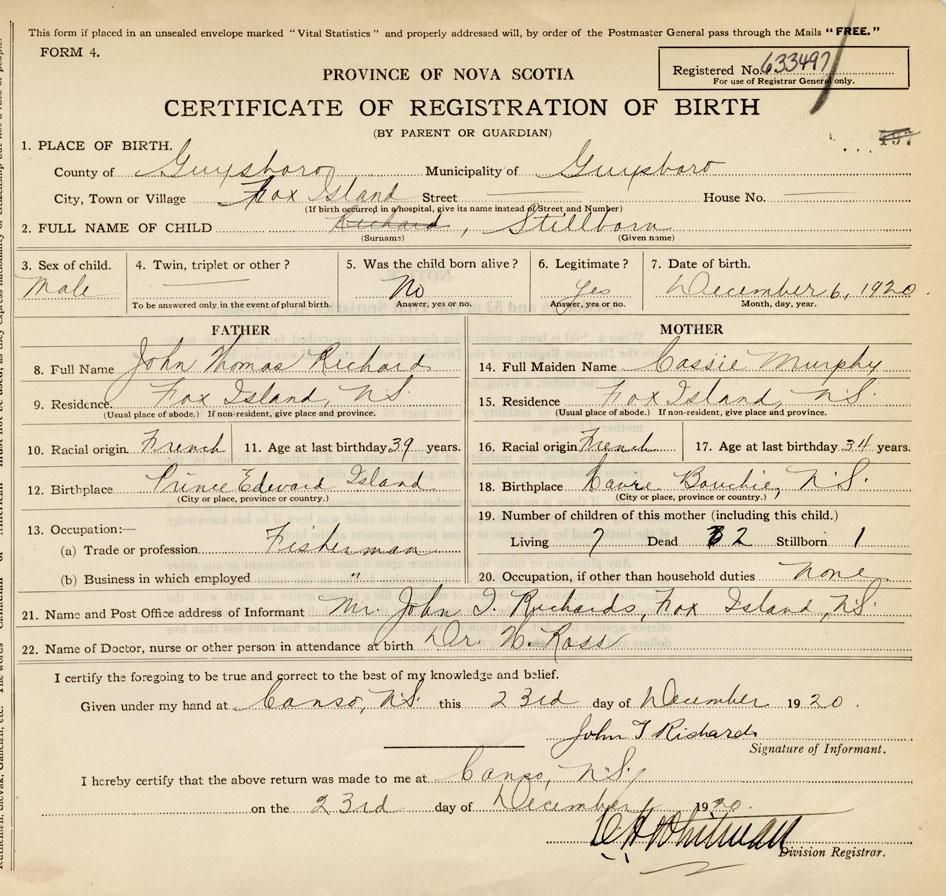 This form if placed in an unsealed envelope marked "Vital Statistics" and properly addressed will, by order of the Postmaster General pass through the Mails "FREE."
FORM 4.
Registered No. 633497
For use of Registrar General only.
PROVINCE OF NOVA SCOTIA
CERTIFICATE OF REGISTRATION OF BIRTH
(BY PARENT OR GUARDIAN)
1. PLACE OF BIRTH.
County of Guysboro Municipality of Guysboro
City, Town or Village Fox Island Street House No.
(If birth occurred in a hospital, give its name instead of Street and Number)
2. FULL NAME OF CHILD Richard, Stillborn
(Surname) (Given name)
3. Sex of child. 4. Twin, triplet or other? 5. Was the child born alive? 6. Legitimate? 7. Date of birth.
Male No Yes December 6, 1920.
To be answered only in the event of plural birth. Answer, yes or no. Answer, yes or no. Month, day, year.
FATHER MOTHER
8. Full Name John Thomas Richard 14. Full Maiden Name Cassie Murphy
9. Residence Fox Island, N.S. 15. Residence Fox Island, N.S.
(Usual place of abode.) If non-resident, give place and province. (Usual place of abode.) If non-resident, give place and province.
10. Racial origin French 11. Age at last birthday 39 years. 16. Racial origin French 17. Age at last birthday 34 years.
12. Birthplace Prince Edward Island 18. Birthplace Bouchie, N.S.
(City or place, province or country.) (City or place, province or country.)
13. Occupation:— 19. Number of children of this mother (including this child.)
(a) Trade or profession Fisherman Living 7 Dead 2 Stillborn 1
(b) Business in which employed " 20. Occupation, if other than household duties None
21. Name and Post Office address of Informant Mr. John T. Richards, Fox Island, N.S.
22. Name of Doctor, nurse or other person in attendance at birth Dr. N. Ross
I certify the foregoing to be true and correct to the best of my knowledge and belief.
Given under my hand at Canso, N.S. this 23rd day of December 1920.
John T Richards
Signature of Informant.
I hereby certify that the above return was made to me at Canso, N.S.
on the 23rd day of December 1920.
C H Whitman
Division Registrar.